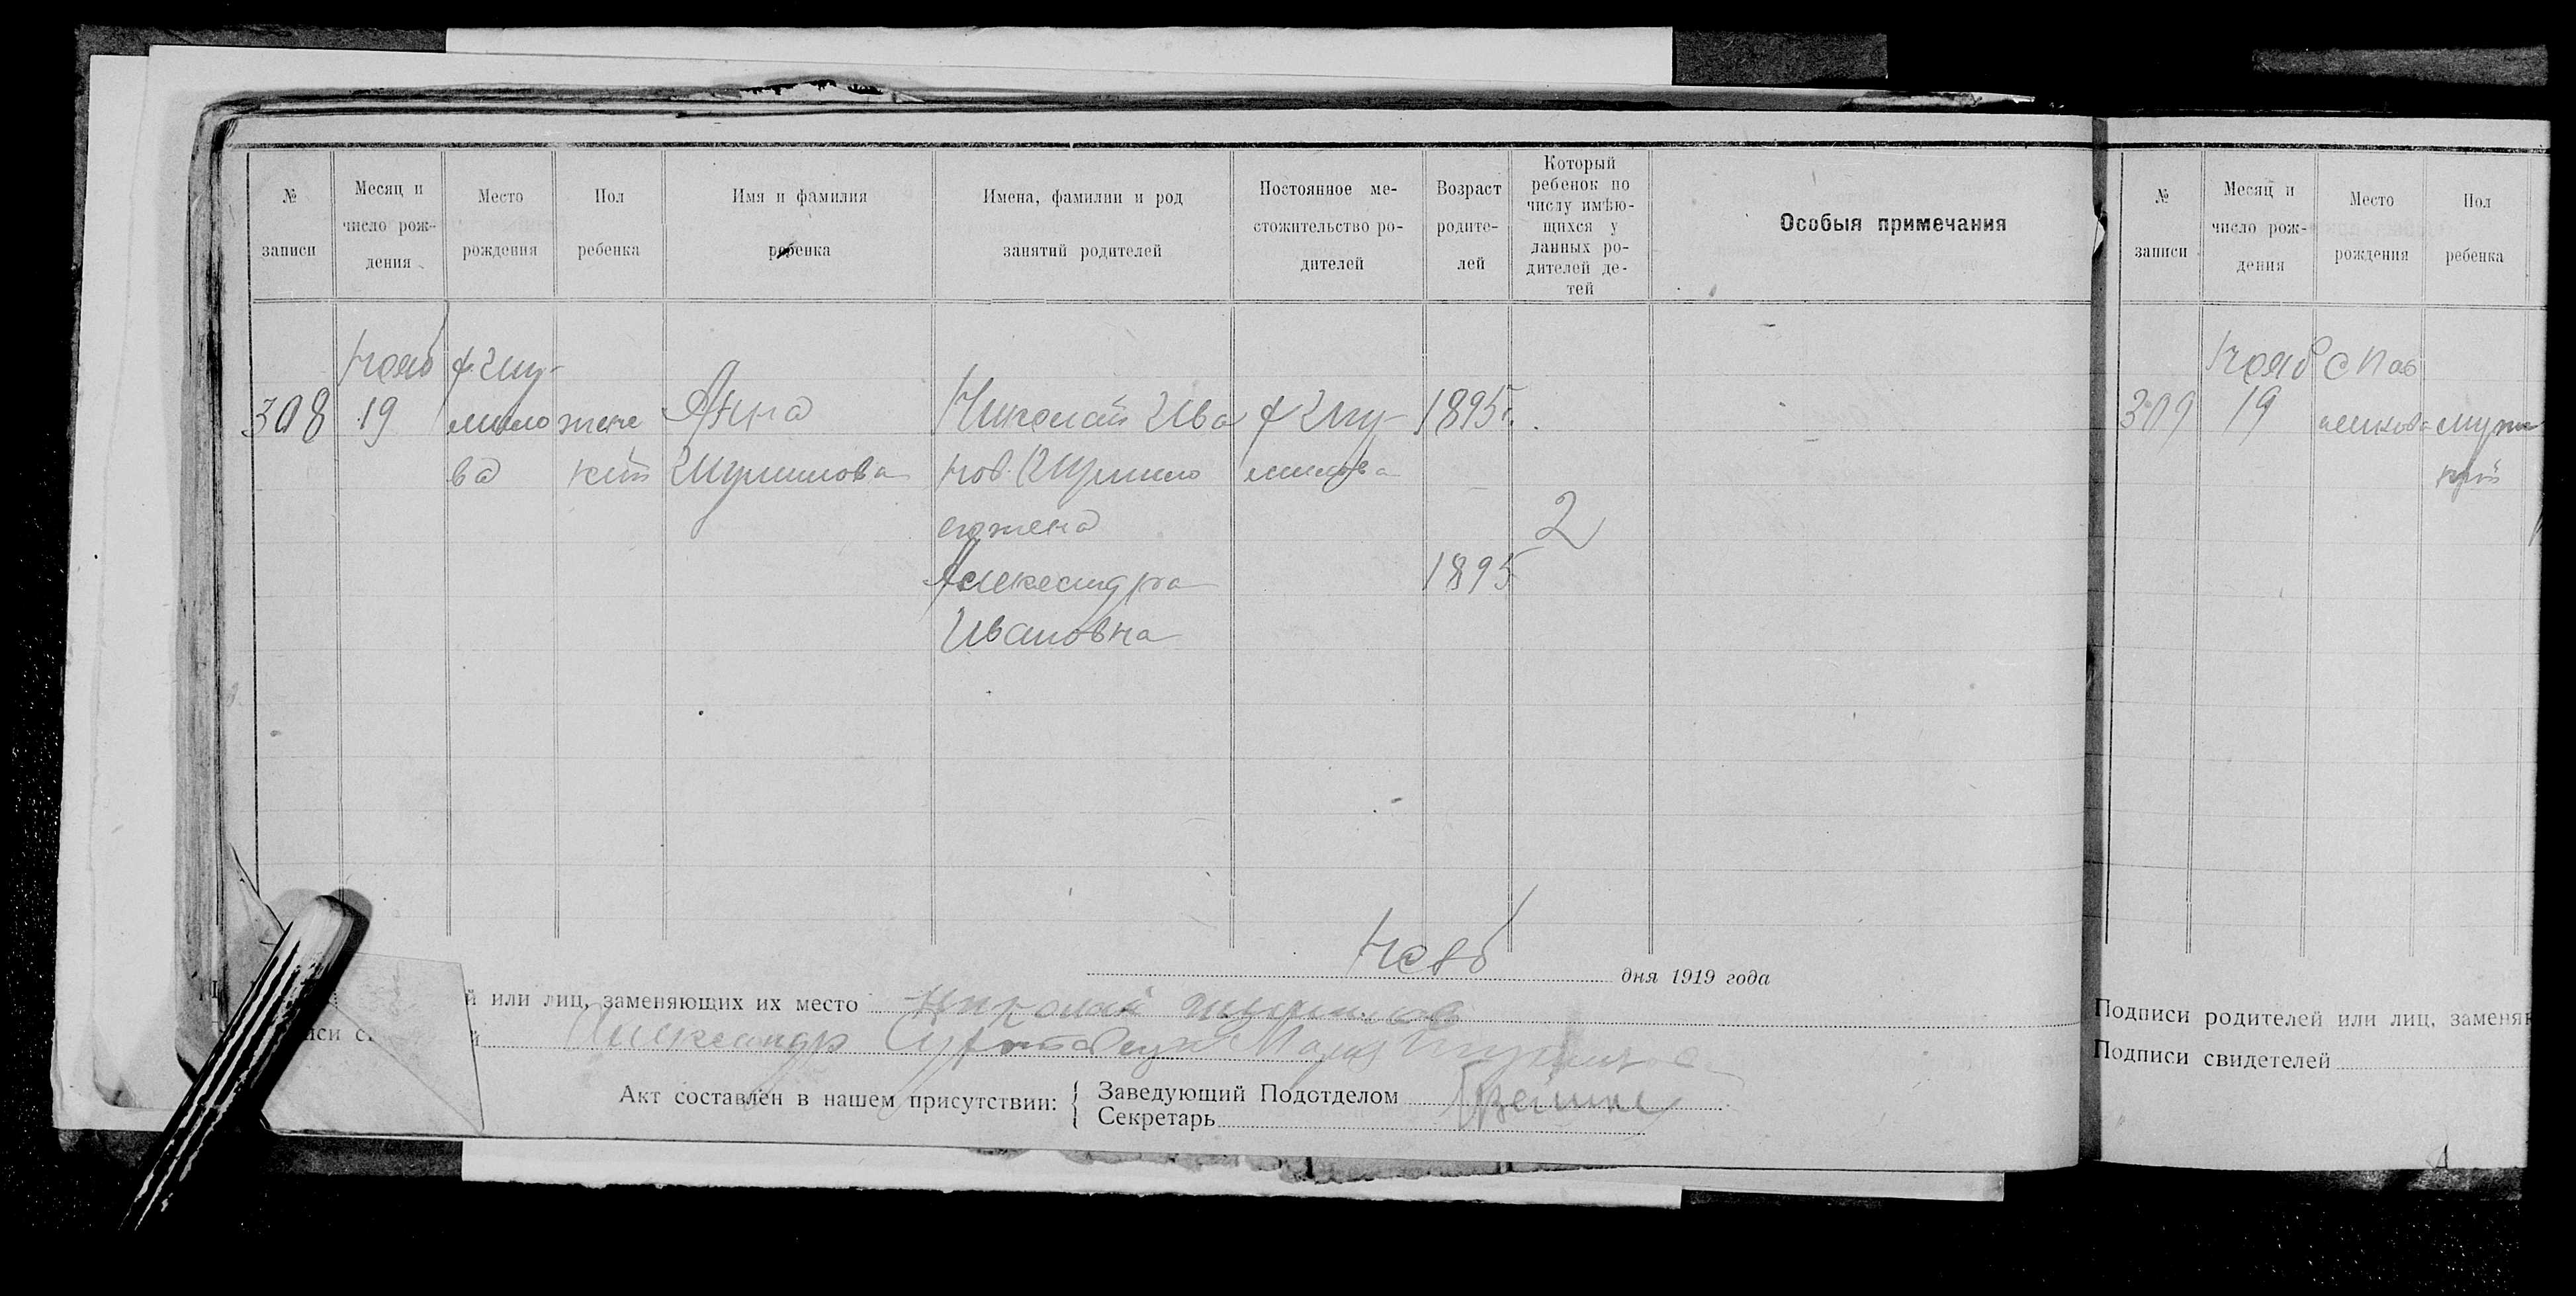 № записи
Месяц и число рождения
Место рождения
Пол ребенка
Имя и фамилия ребенка
Имена, фамилии и род занятий родителей
Постоянное местожительство родителей
Возраст родителей
Который ребенок по числу имѣющихся у данных родителей детей
Особыя примечания
308
Нояб
19
женс
кий
Анна
Шумилова
Николай Ива
нов. Шумило
его жена
Александра
Ивановна
д Шу-
милова
1895 г.
1895
2
Нояб дня 1919 года
й или лиц, заменяющих их место Николай Шумилов
Александр
Акт составлен в нашем присутствии:
Заведующий Подотделом
Секретарь
№ записи
Месяц и число рождения
Место рождения
Пол ребенка
309
Нояб
19
с Пав
муж
кой
Подписи родителей или лиц, заменя
Подписи свидетелей